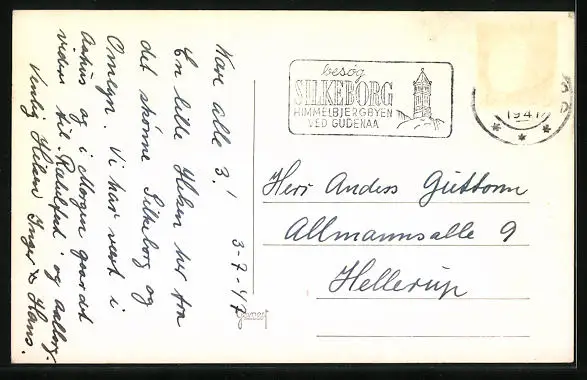 Kære alle 3!
3-7-47
En lille Hilsen her fra
det skønne Silkeborg og
Omegn. Vi har været i
Aarhus og i Morgen gaar det
videre til Rebild og Aalborg.
Venlig Hilsen Inger & Hans.
besøg
SILKEBORG
HIMMELBJERGBYEN
VED GUDENAA
1947
Herr Anders Guttorm
Allmannsalle 9
Hellerup
Gevaert